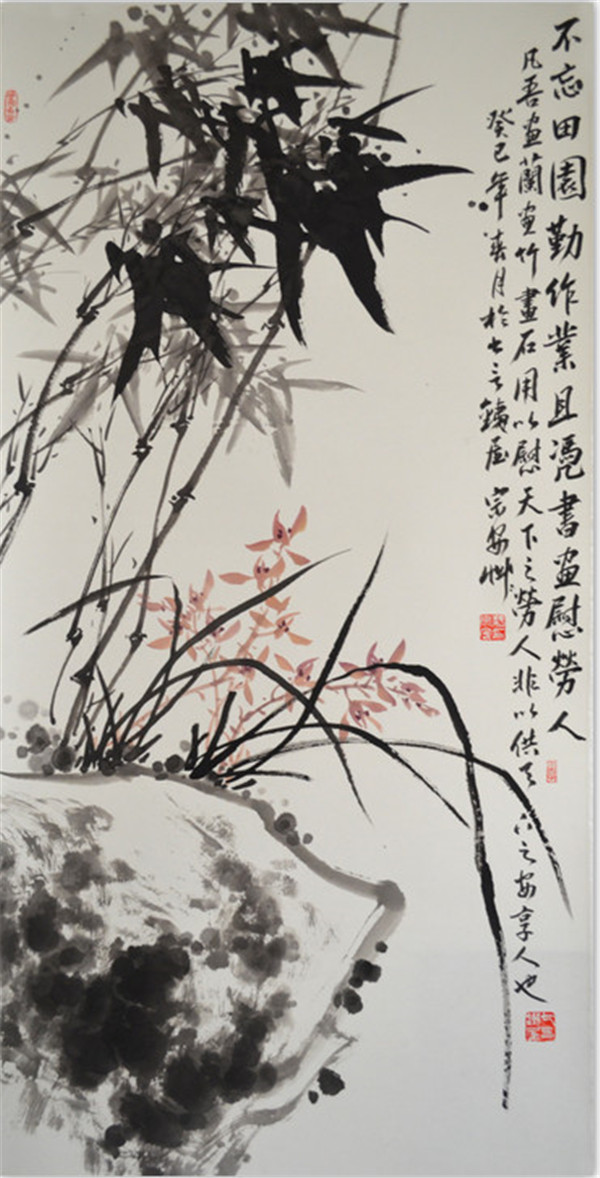 不忘田園勤作業且憑書畫慰勞人
凡吾画蘭画竹畫石用以慰天下之勞人非以供天下之安享人也
癸巳年春月於七言錢屋宗安